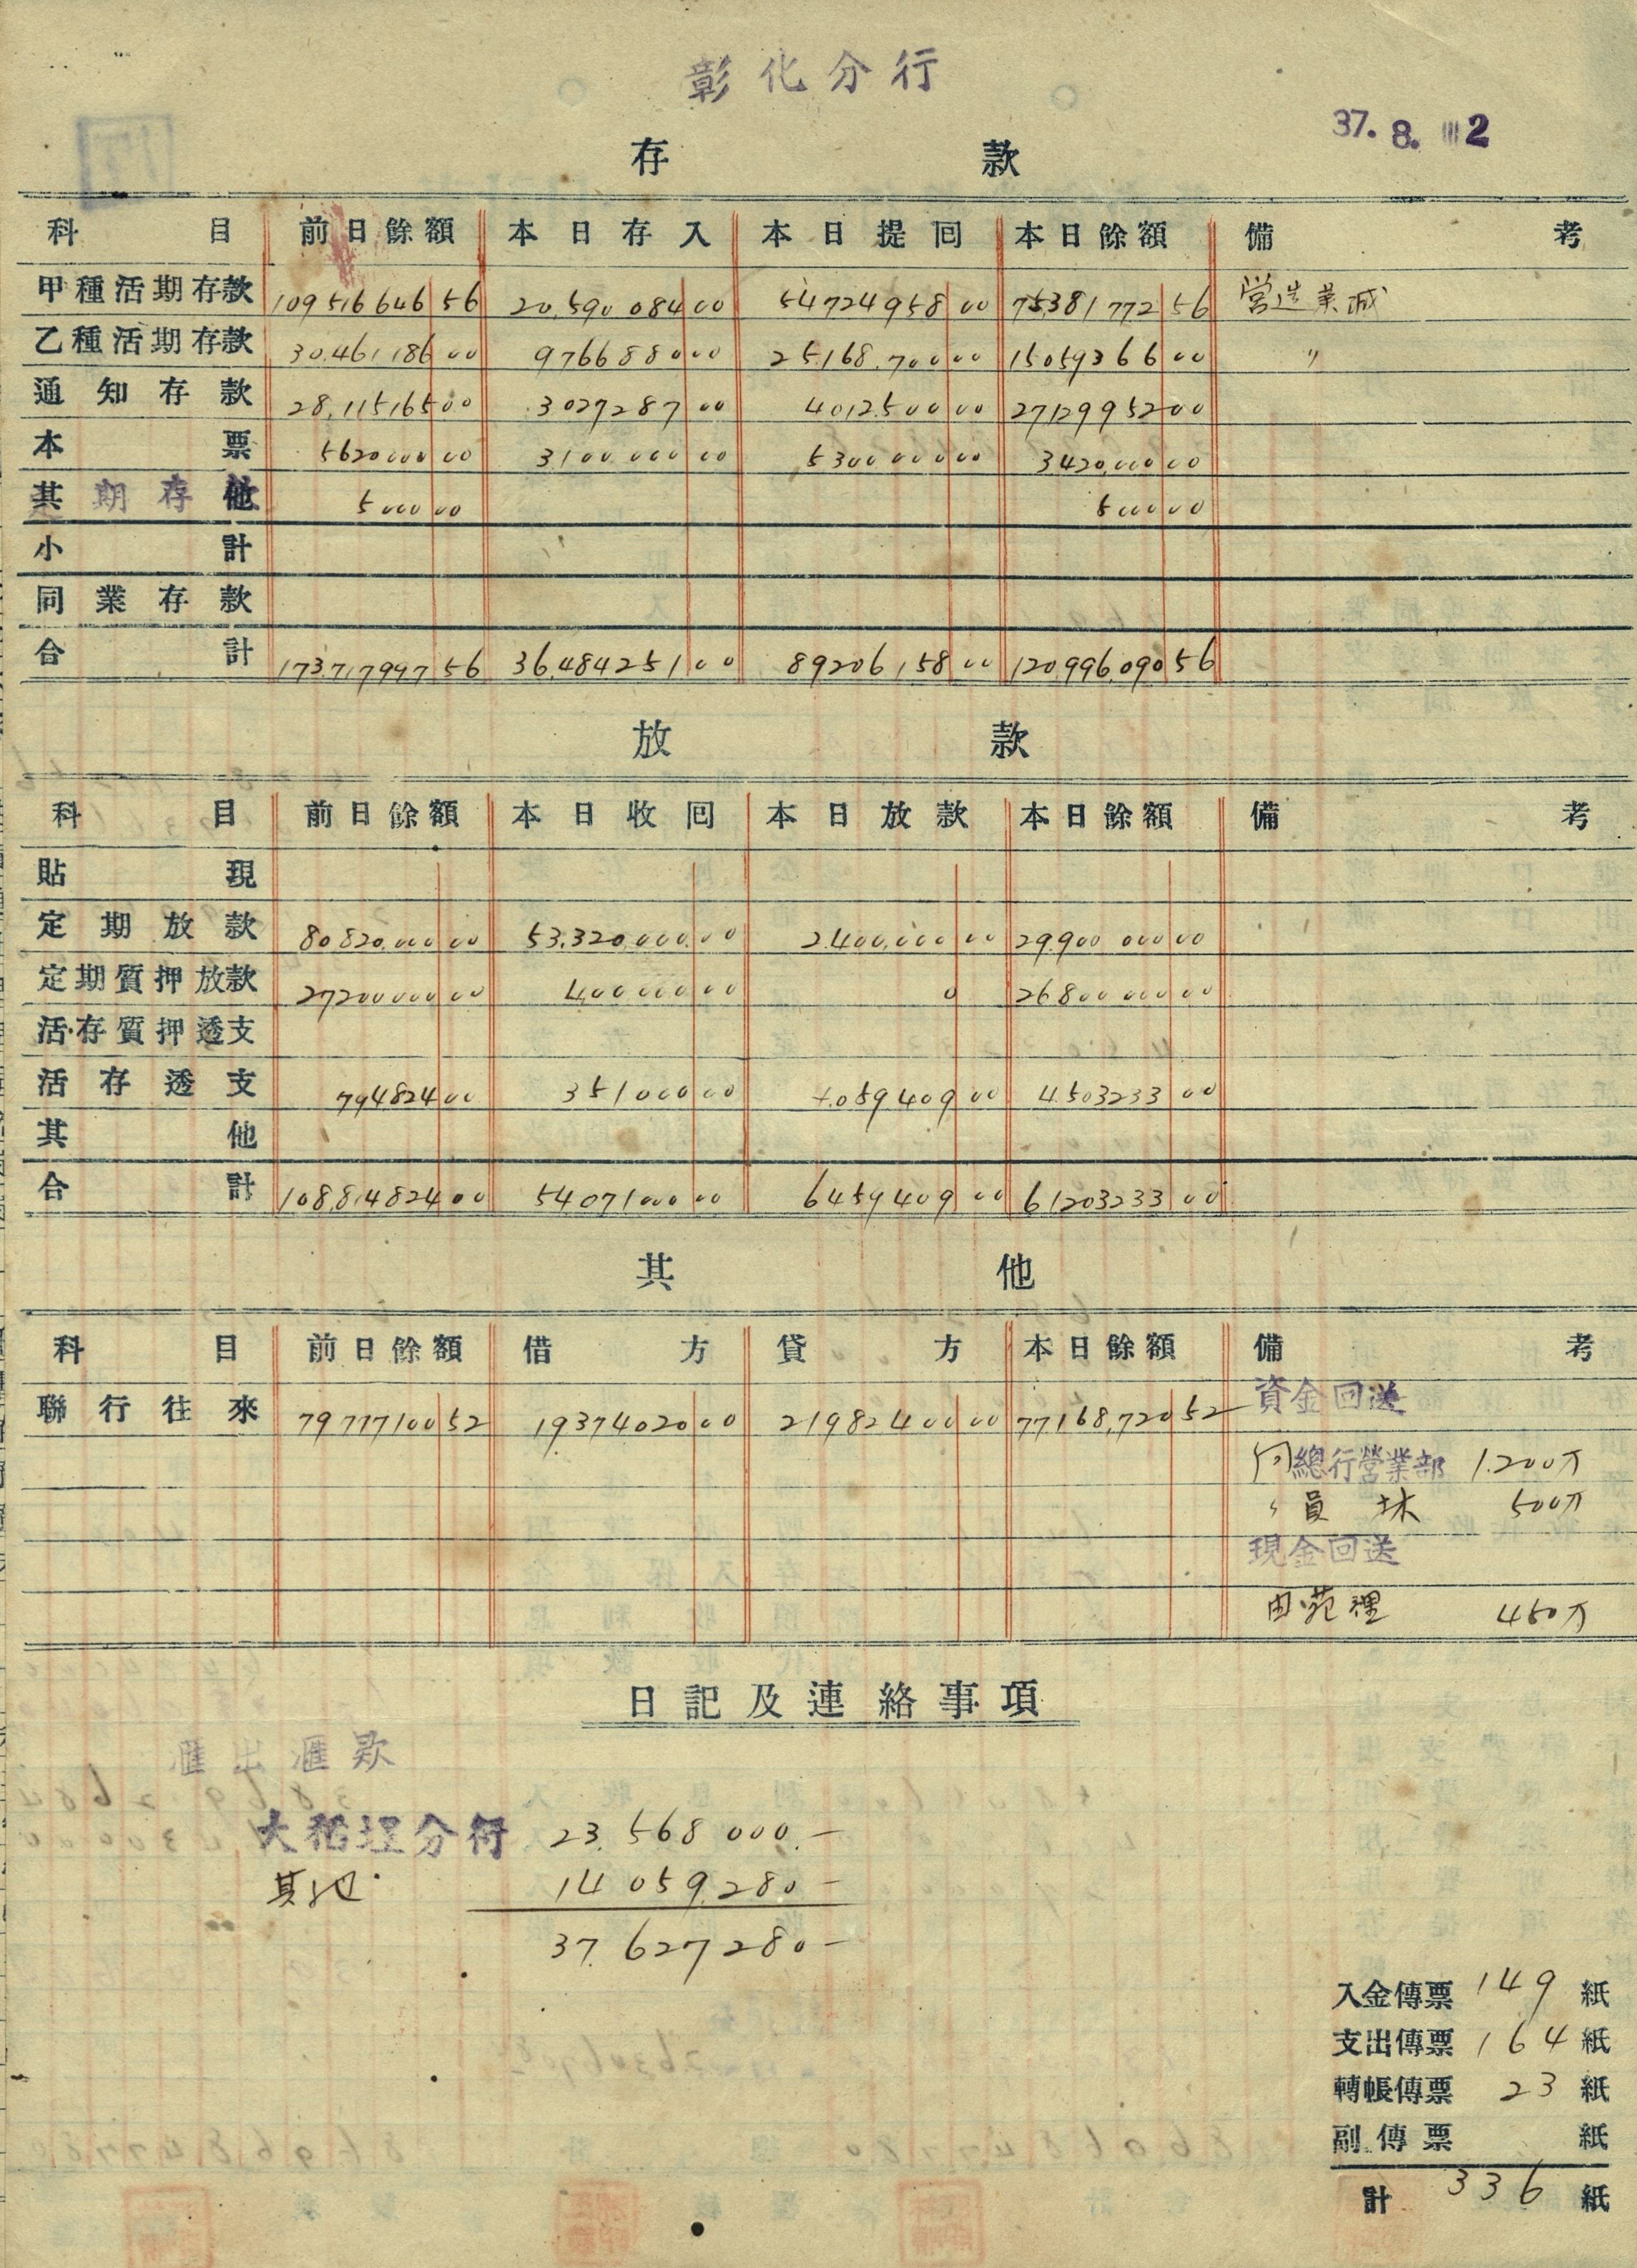 彰化分行
37. 8. 2
存 款
科目 前日餘額 本日存入 本日提回 本日餘額 備考
甲種活期存款 109516646 56 20,590 084 00 54724958 00 75381772 56 營造業減
乙種活期存款 30.461186 00 9766880 00 25168.700 00 15059366 00 〃
通知存款 28,115165 00 3027287 00 4012500 00 27129952 00
本票 5620000 00 3100000 00 5300000 00 3420,000 00
其他 期存 5000 00 5000 00
小計
同業存款
合計 173717997 56 36,484251 00 89206158 00 120,996,090 56
放 款
科目 前日餘額 本日收回 本日放款 本日餘額 備考
貼現
定期放款 80820.000 00 53.320,000 00 2.400,000 00 29.900 000 00
定期質押放款 27200000 00 400000 00 0 26800000 00
活存質押透支
活存透支 794824 00 351000 00 4.059.409 00 4.503233 00
其他
合計 108814824 00 54071000 00 6459409 00 61203233 00
其 他
科目 前日餘額 借方 貸方 本日餘額 備考
聯行往來 79777100 52 19374020 00 21982400 00 77168,720 52 資金回送
向總行營業部 1.200万
〃 員林 500万
現金回送
由苑裡 450万
日記及連絡事項
匯出匯款
大稻埕分行 23.568 000.—
其他 14 059.280 —
37.627280 —
入金傳票 149 紙
支出傳票 164 紙
轉帳傳票 23 紙
副傳票 紙
計 336 紙